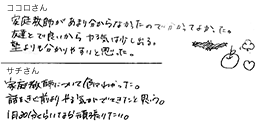 ココロさん
家庭教師があまり分からなかったのでかなてよかた。
友達とで良いからやる気は少し出る。
塾よりも分かりやすいと思った。
サチさん
家庭教師について色々わかった。
話をきく前よりやる気がでてきたと思う。
1日30分くらいなら頑張りたい。